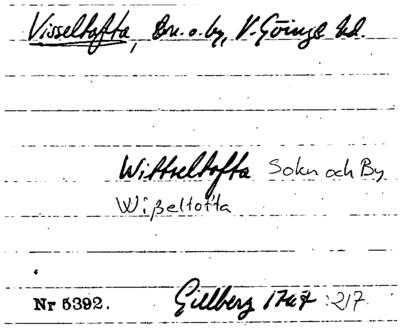 Visseltofta, sn. o. by, V. Göinge hd.
Wittseltofta Sokn och By
Wißeltofta
Nr 5392. Gillberg 1767 217